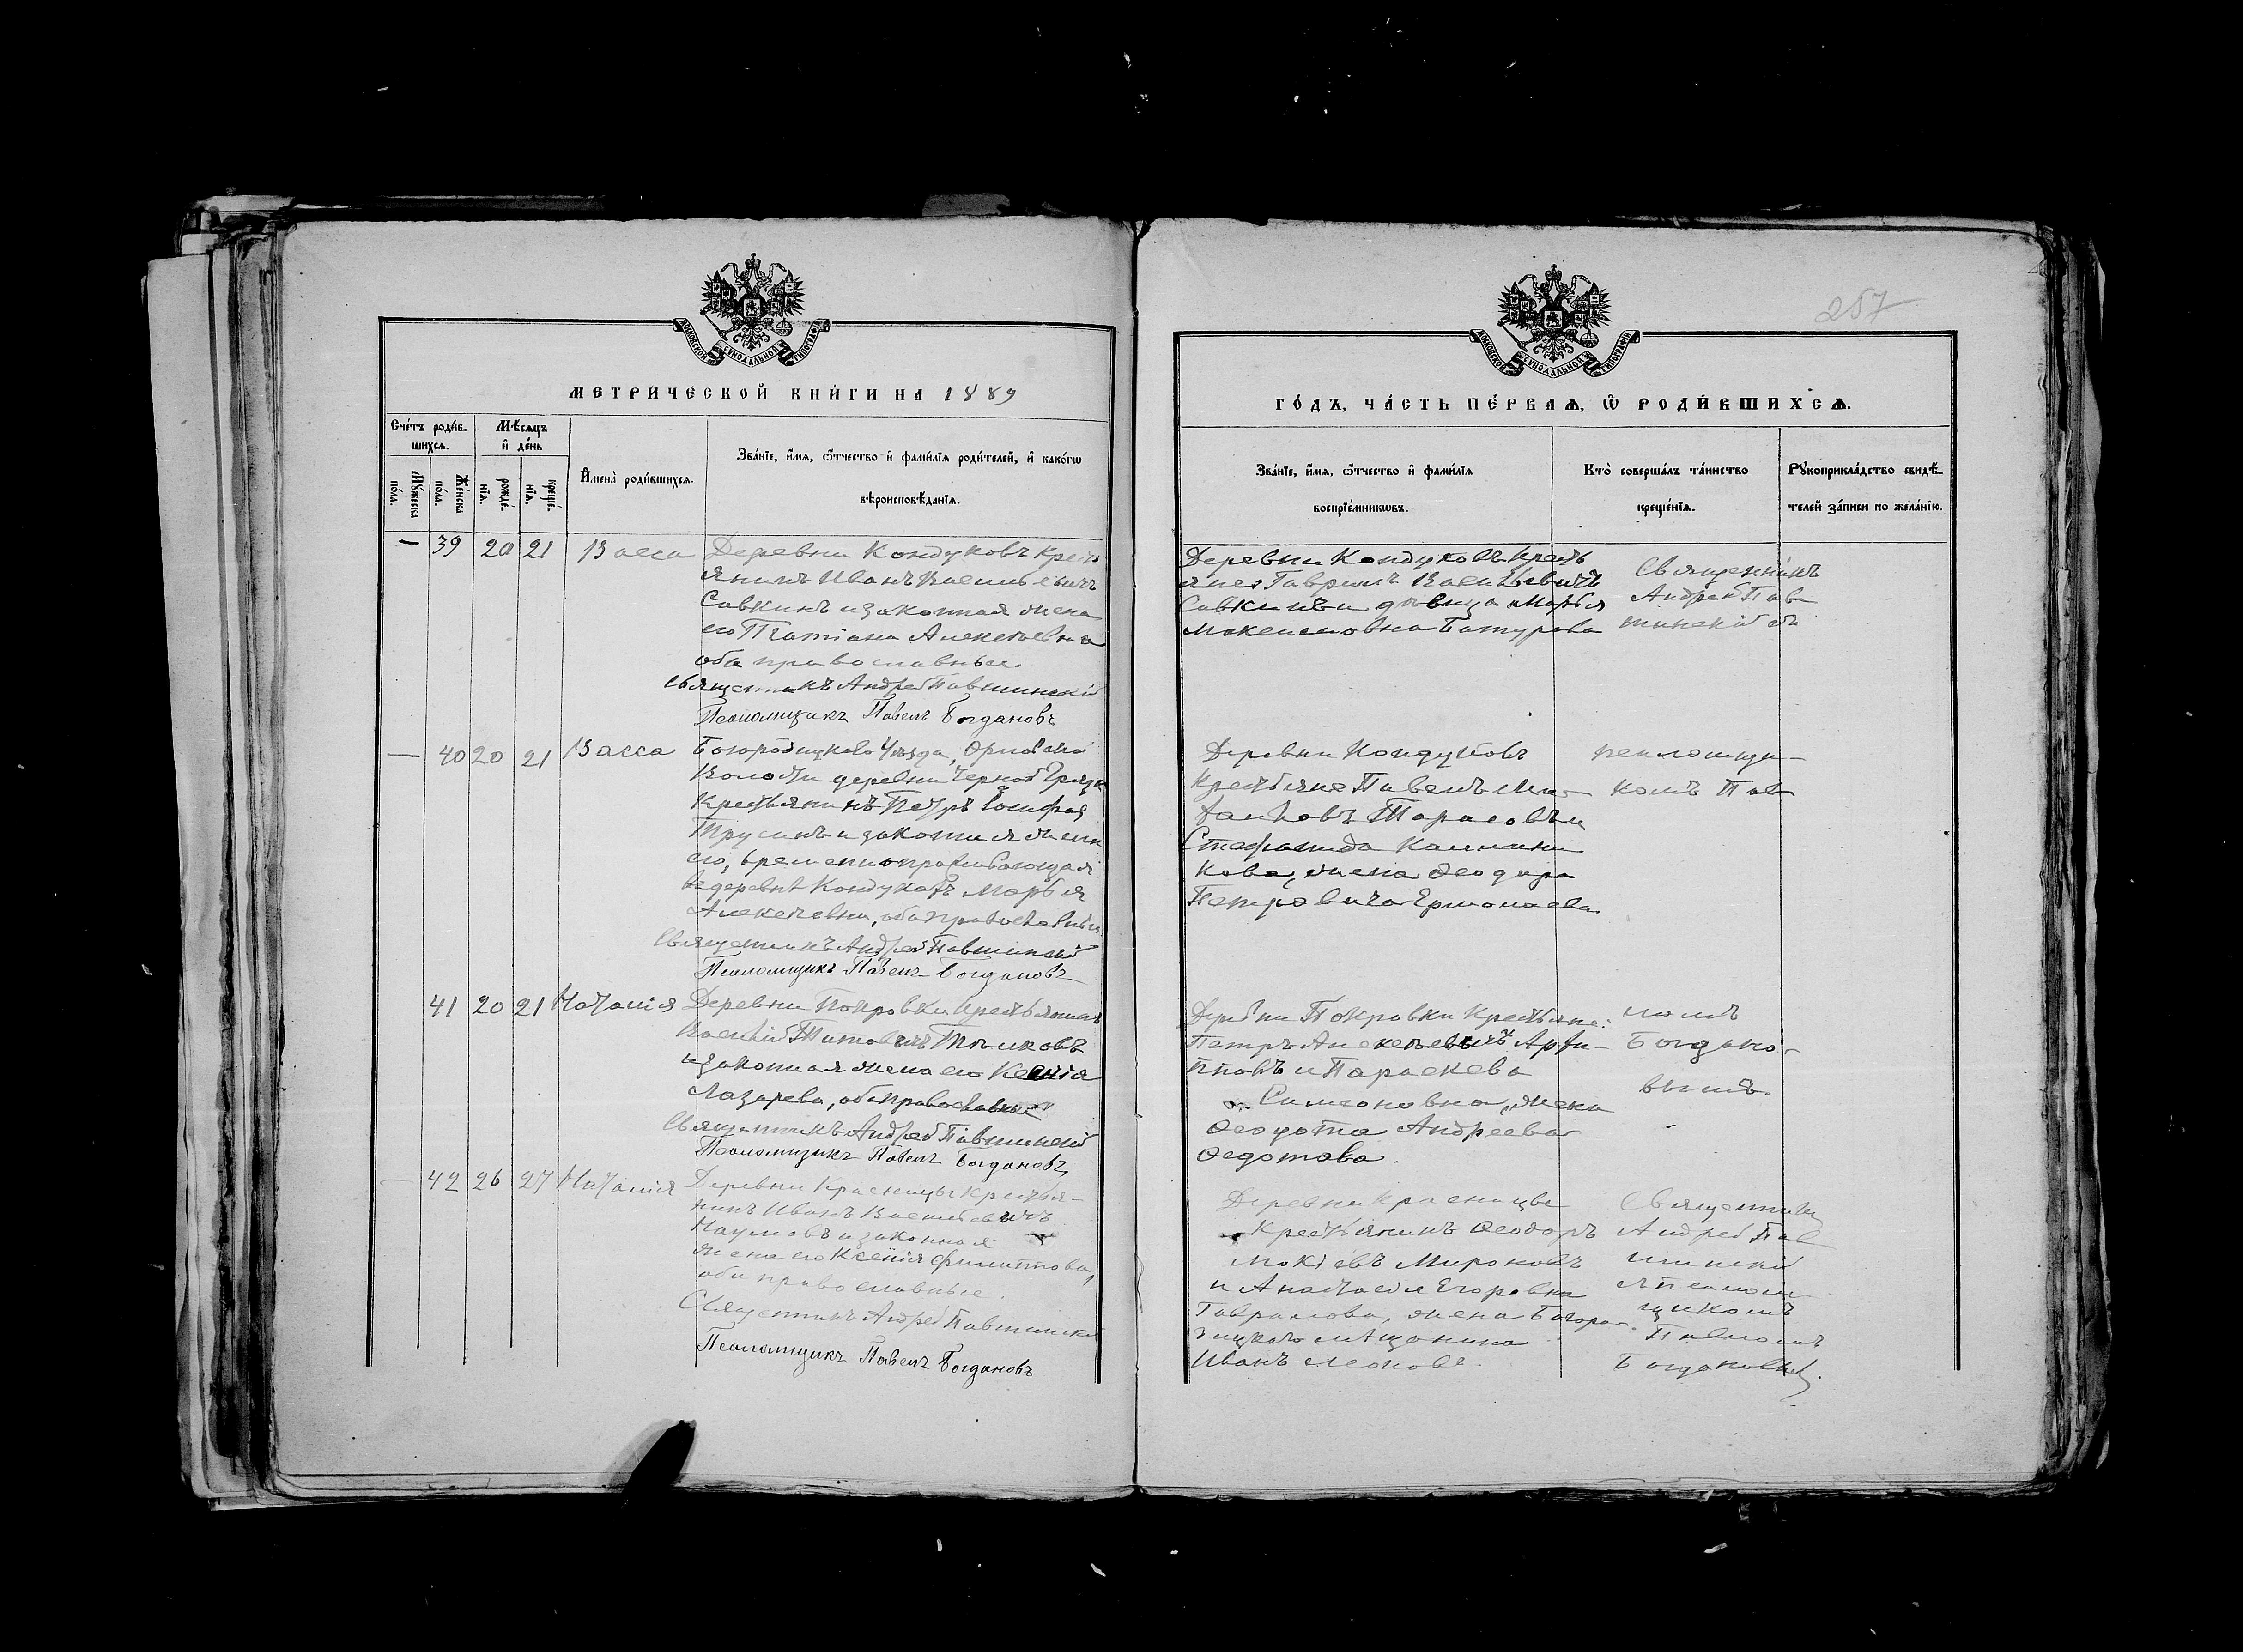 257
МОСКОВСКОЙ СѴНОДАЛЬНОЙ ТИПОГРАФІИ
МОСКОВСКОЙ СѴНОДАЛЬНОЙ ТИПОГРАФІИ
МЕТРИЧЕСКОЙ КНИ́ГИ НА 1889
ГО́ДЪ, ЧА́СТЬ ПЕ́РВАѦ, Ѡ РОДИ́ВШИХСѦ.
Сче́тъ роди́в-
шихсѧ.
Мꙋ́жеска
по́ла.
Же́нска
по́ла.
Мѣ́сѧцъ
и҆ де́нь
рожде́-
нїѧ.
креще́-
нїѧ.
И҆мена̀ роди́вшихсѧ.
Зва́нїе, и҆́мѧ, ѻ҆́тчество и҆ фами́лїѧ роди́телей, и҆ како́гѡ
вѣроисповѣ́данїѧ.
Зва́нїе, и҆́мѧ, ѻ҆́тчество и҆ фами́лїѧ
воспрїе́мникѡвъ.
Кто̀ соверша́лъ та́инство
креще́нїѧ.
Рꙋкоприкла́дство свидѣ́-
телей за́писи по жела́нїю.
— 39 20 21 Васса
Деревни Кондуковъ кресть
янинъ Иванъ Васильевичъ
Савкинъ и законная жена
его Татіана Алексѣевна
оба православные.
Священникъ Андрей Павшинскій
Псаломщикъ Павелъ Богдановъ
Деревни Кондуковъ кресть
яне Гавріилъ Васильевичъ
Савкинъ и дѣвица Марья
Максимовна Батурева
Священникъ
Андрей Пав
шинскій съ
— 40 20 21 Васса
Богородицкаго Уѣзда,
Волости деревни Черной Грязи
Крестьянинъ Петръ
Трусинъ и законная жена
его, временно проживающая
въ деревнѣ Кондукахъ Марья
Алексѣевна, оба православные
Священникъ Андрей Павшинскій
Псаломщикъ Павелъ Богдановъ
Деревни Кондуковъ
Крестьяне Павелъ
Тарасовъ и
Стефанида Калини
кова, жена Ѳеодора
Петровича Ермолаева
псаломщи-
комъ Пав
41 20 21 Наталія
Деревни Покровки Крестьянинъ
Василій Титовичъ
и законная жена его Ксенія
Лазарева, оба православные
Священникъ Андрей Павшинскій
Псаломщикъ Павелъ Богдановъ
Деревни Покровки Крестьяне:
Петръ Алексѣевичъ
и Параскева
Симеоновна, жена
Ѳедота Андреева
Ѳедотова.
ломъ
Богдано-
вымъ
— 42 26 27 Наталія
Деревни Красницы Крестья-
нинъ Иванъ Васильевичъ
Наумовъ и законная
жена его Ксенія Филиппова,
оба православные.
Священникъ Андрей Павшинскій
Псаломщикъ Павелъ Богдановъ
Деревни Красницы
Крестьянинъ Ѳеодоръ
Мокіевъ Мироновъ
и Анастасія Егоровна
Гаврилова, жена Богоро-
дицкаго мѣщанина
Иванъ Леоновъ.
Священникъ
Андрей Пав
шинскій
псалом
щикомъ
Павломъ
Богдановымъ.